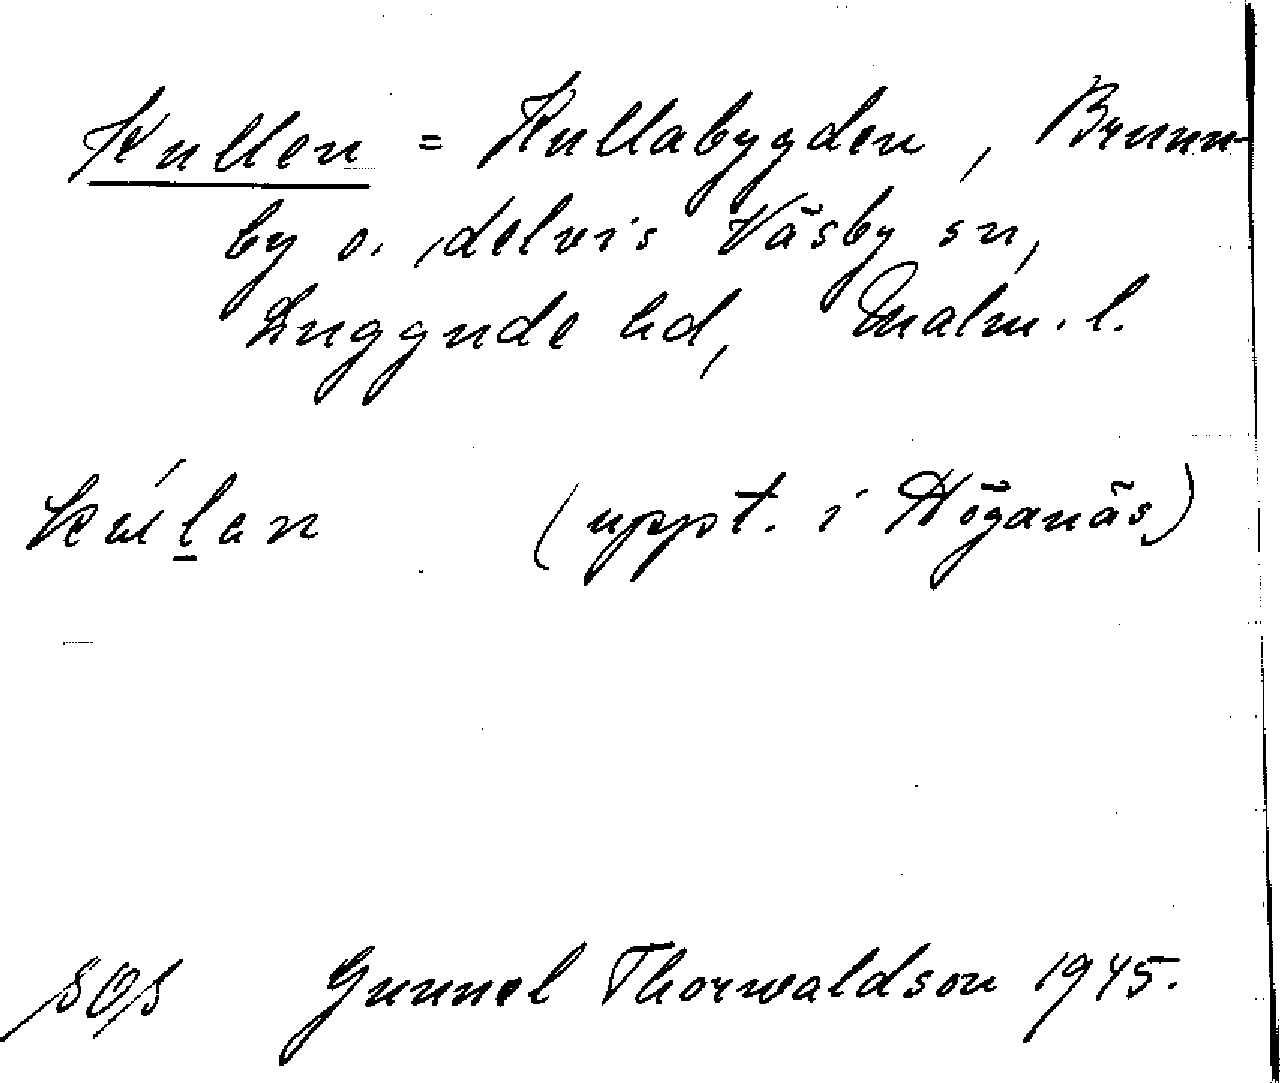 Kullen = Kullabygden, Brunn-
by o. delvis Väsby sn,
Luggude hd, Malm. l.
(uppt. i Höganäs)
SOS Gunnel Thorwaldson 1945.